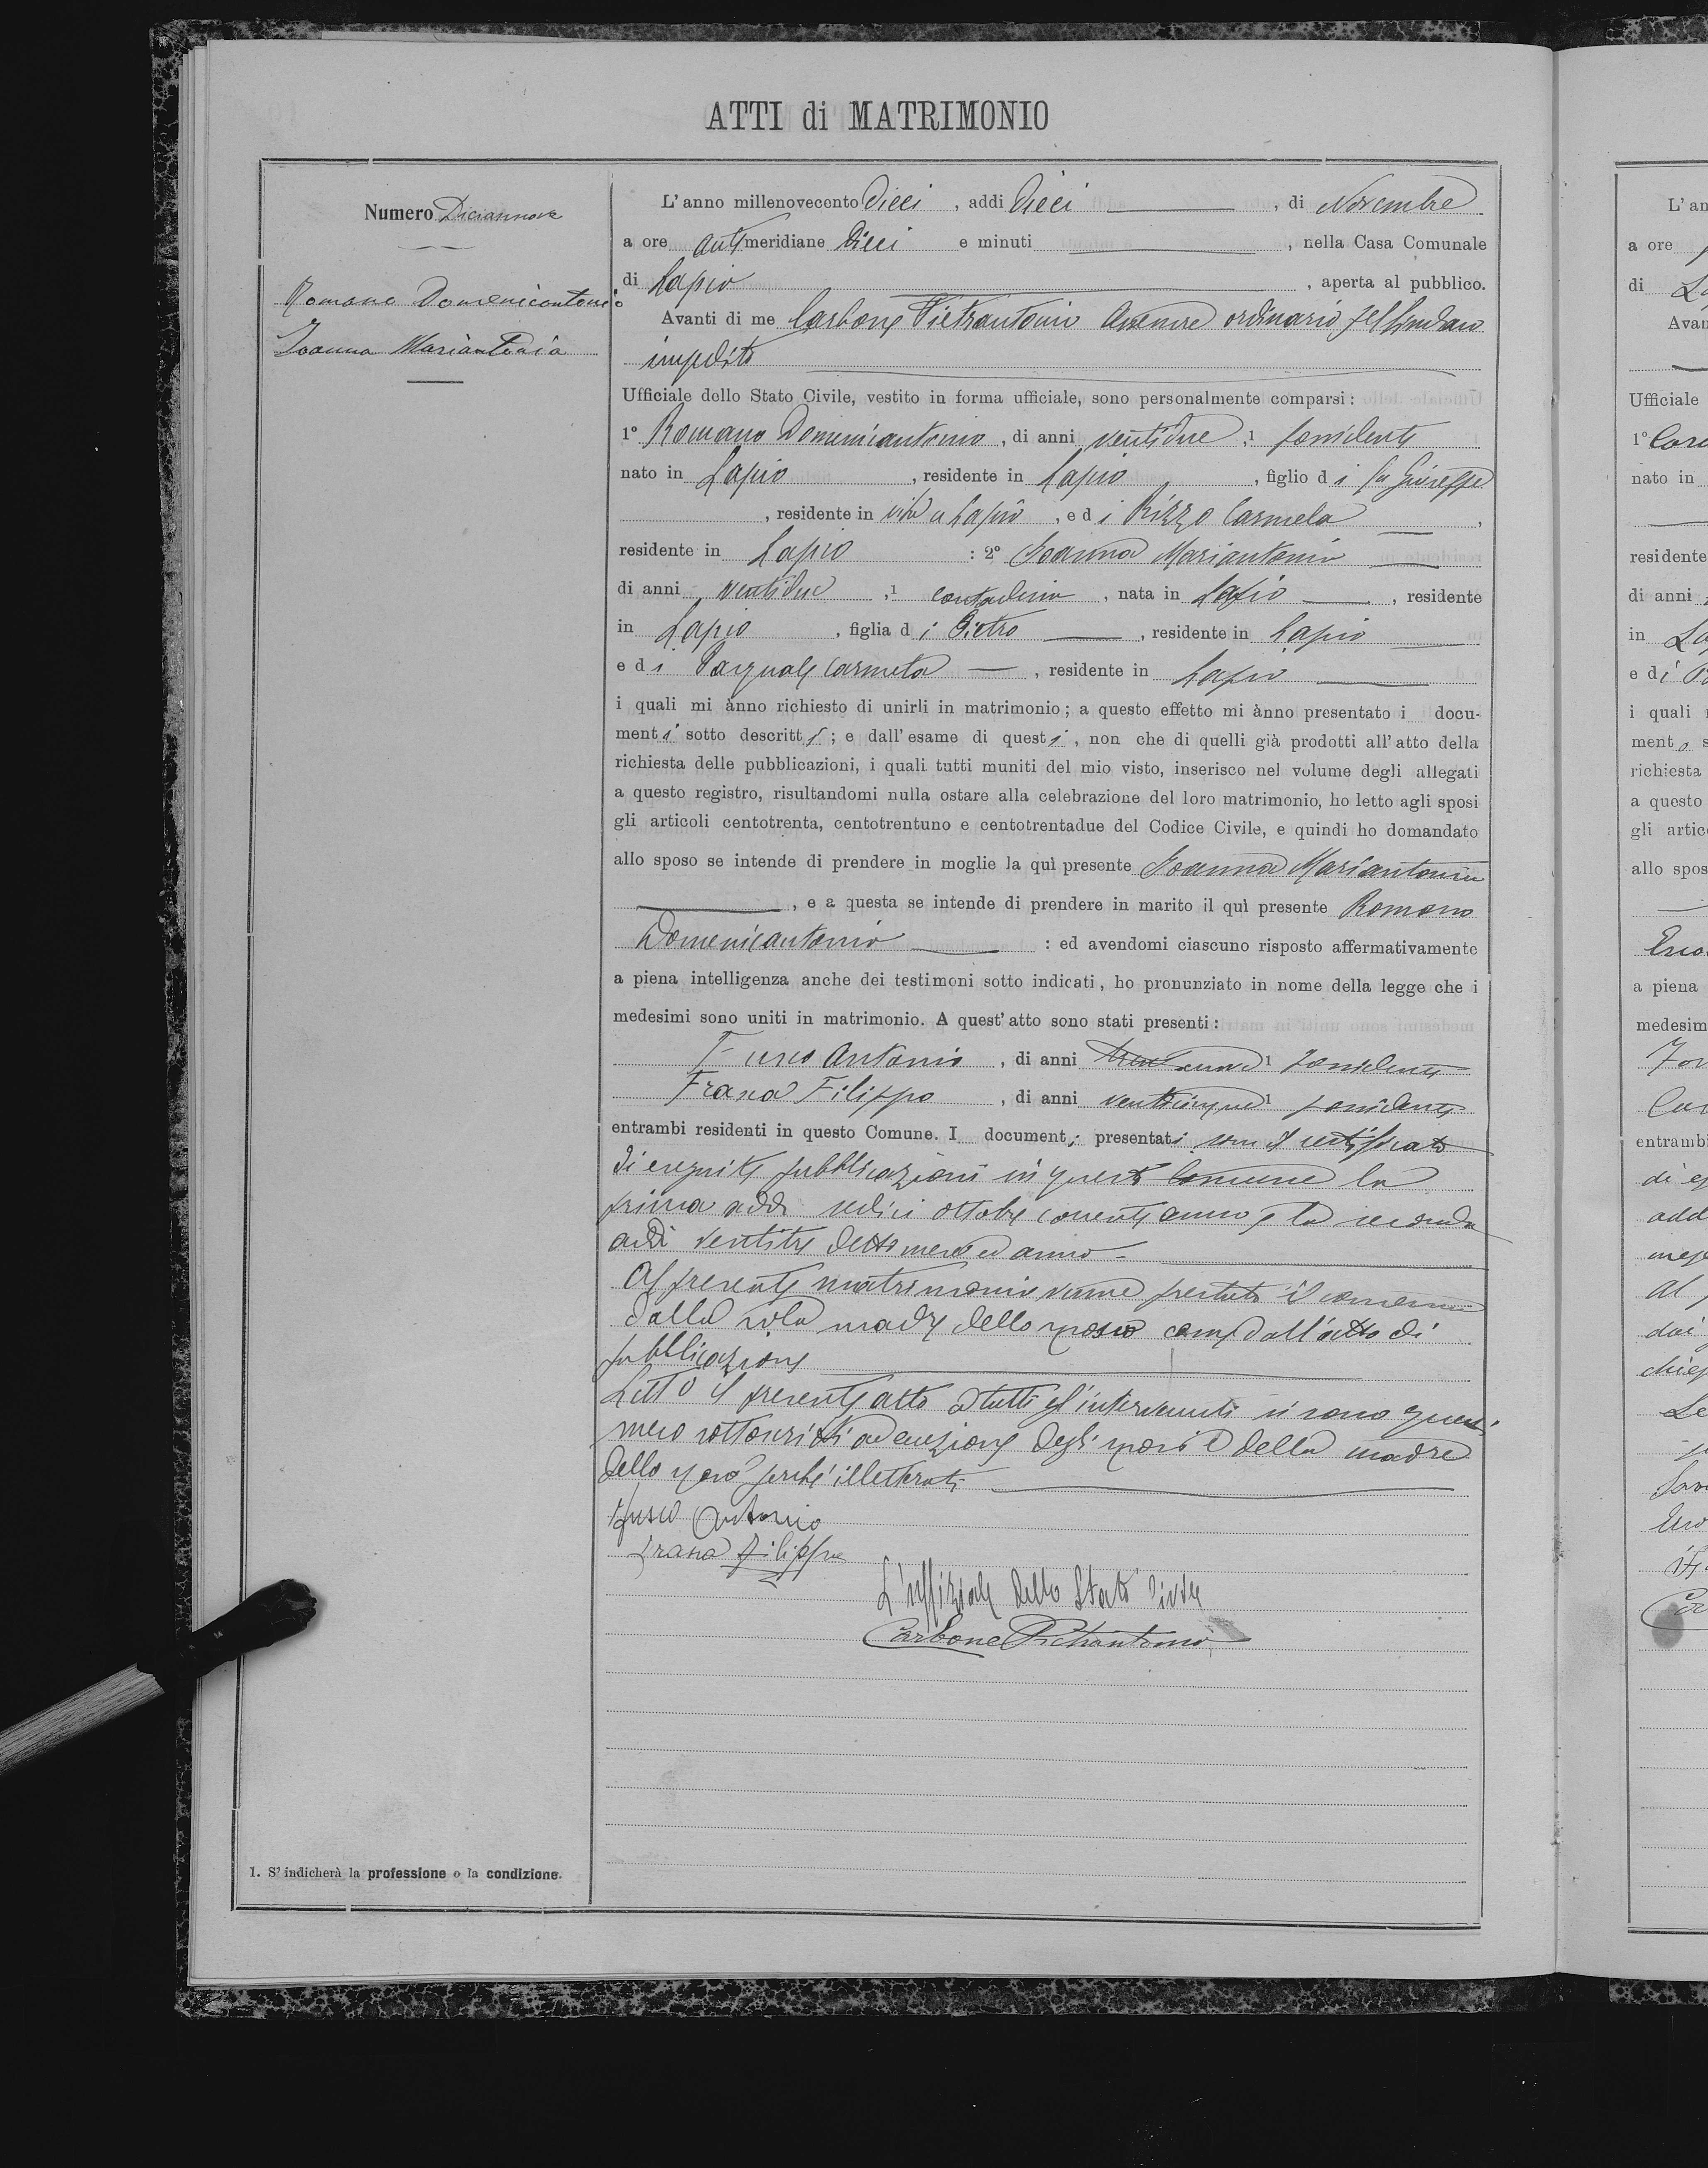 ATTI di MATRIMONIO
Numero Diciannove
Romano Domenicantonio
Ioanna Mariantonia
1. S' indicherà la professione o la condizione.
L' anno millenovecento Dieci , addi Dieci , di Novembre
a ore antimeridiane Dieci e minuti , nella Casa Comunale
di Lapio , aperta al pubblico.
Avanti di me Carbone Pietrantonio Assessore ordinario pel Sindaco
impedito
Ufficiale dello Stato Civile, vestito in forma ufficiale, sono personalmente comparsi :
1° Romano Domenicantonio , di anni ventidue , 1 possidente
nato in Lapio , residente in Lapio , figlio di fu Giuseppe
, residente in vita a Lapio , e di Rizzo Carmela ,
residente in Lapio : 2° Ioanna Mariantonia
di anni ventidue ,1 contadina , nata in Lapio , residente
in Lapio , figlia di Pietro , residente in Lapio
e di Pasquale Carmela , residente in Lapio
i quali mi ànno richiesto di unirli in matrimonio ; a questo effetto mi ànno presentato i docu-
menti sotto descritti ; e dall' esame di questi , non che di quelli già prodotti all' atto della
richiesta delle pubblicazioni, i quali tutti muniti del mio visto, inserisco nel volume degli allegati
a questo registro, risultandomi nulla ostare alla celebrazione del loro matrimonio, ho letto agli sposi
gli articoli centotrenta, centotrentuno e centotrentadue del Codice Civile, e quindi ho domandato
allo sposo se intende di prendere in moglie la quì presente Ioanna Mariantonia
, e a questa se intende di prendere in marito il quì presente Romano
Domenicantonio : ed avendomi ciascuno risposto affermativamente
a piena intelligenza anche dei testimoni sotto indicati , ho pronunziato in nome della legge che i
medesimi sono uniti in matrimonio. A quest' atto sono stati presenti :
Fusco Antonio , di anni 1 possidente
Frasca Filippo , di anni venticinque 1 possidente
entrambi residenti in questo Comune. I documenti presentati sono il certificato
di eseguite pubblicazioni in questo Comune la
prima addi sedici ottobre corrente anno e la seconda
addì ventitre detto mese ed anno
Al presente matrimonio venne prestato il consenso
dalla sola madre dello sposo come dall'atto di
pubblicazione
Letto il presente atto a tutti gl'intervenuti si sono questi
meco sottoscritti ad eccezione degli sposi e della madre
dello sposo perché illetterati
Fusco Antonio
Frasca Filippo
L'uffiziale dello Stato Civile
Carbone Pietrantonio
L' an
a ore
di
Avan
Ufficiale
1°
nato in
residente
di anni
in
e di
i quali
mento s
richiesta
a questo
gli artic
allo spos
a piena
medesim
entrambi